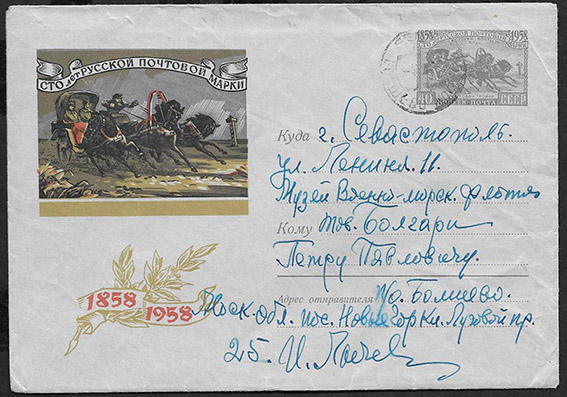 СТО лет РУССКОЙ ПОЧТОВОЙ МАРКИ
1858 1958
СТО ЛЕТ РУССКОЙ ПОЧТОВОЙ МАРКИ
40 КОПЕЕК ПОЧТА СССР
Куда г. Севастополь.
ул. Ленина 11.
Музей Военно-морск. флота
Кому тов. Болгари
Петру Павловичу.
1858
1958
Адрес отправителя п/о. Болшево.
Моск. обл. пос. Новые Горки. Луговой пр.
25. И.